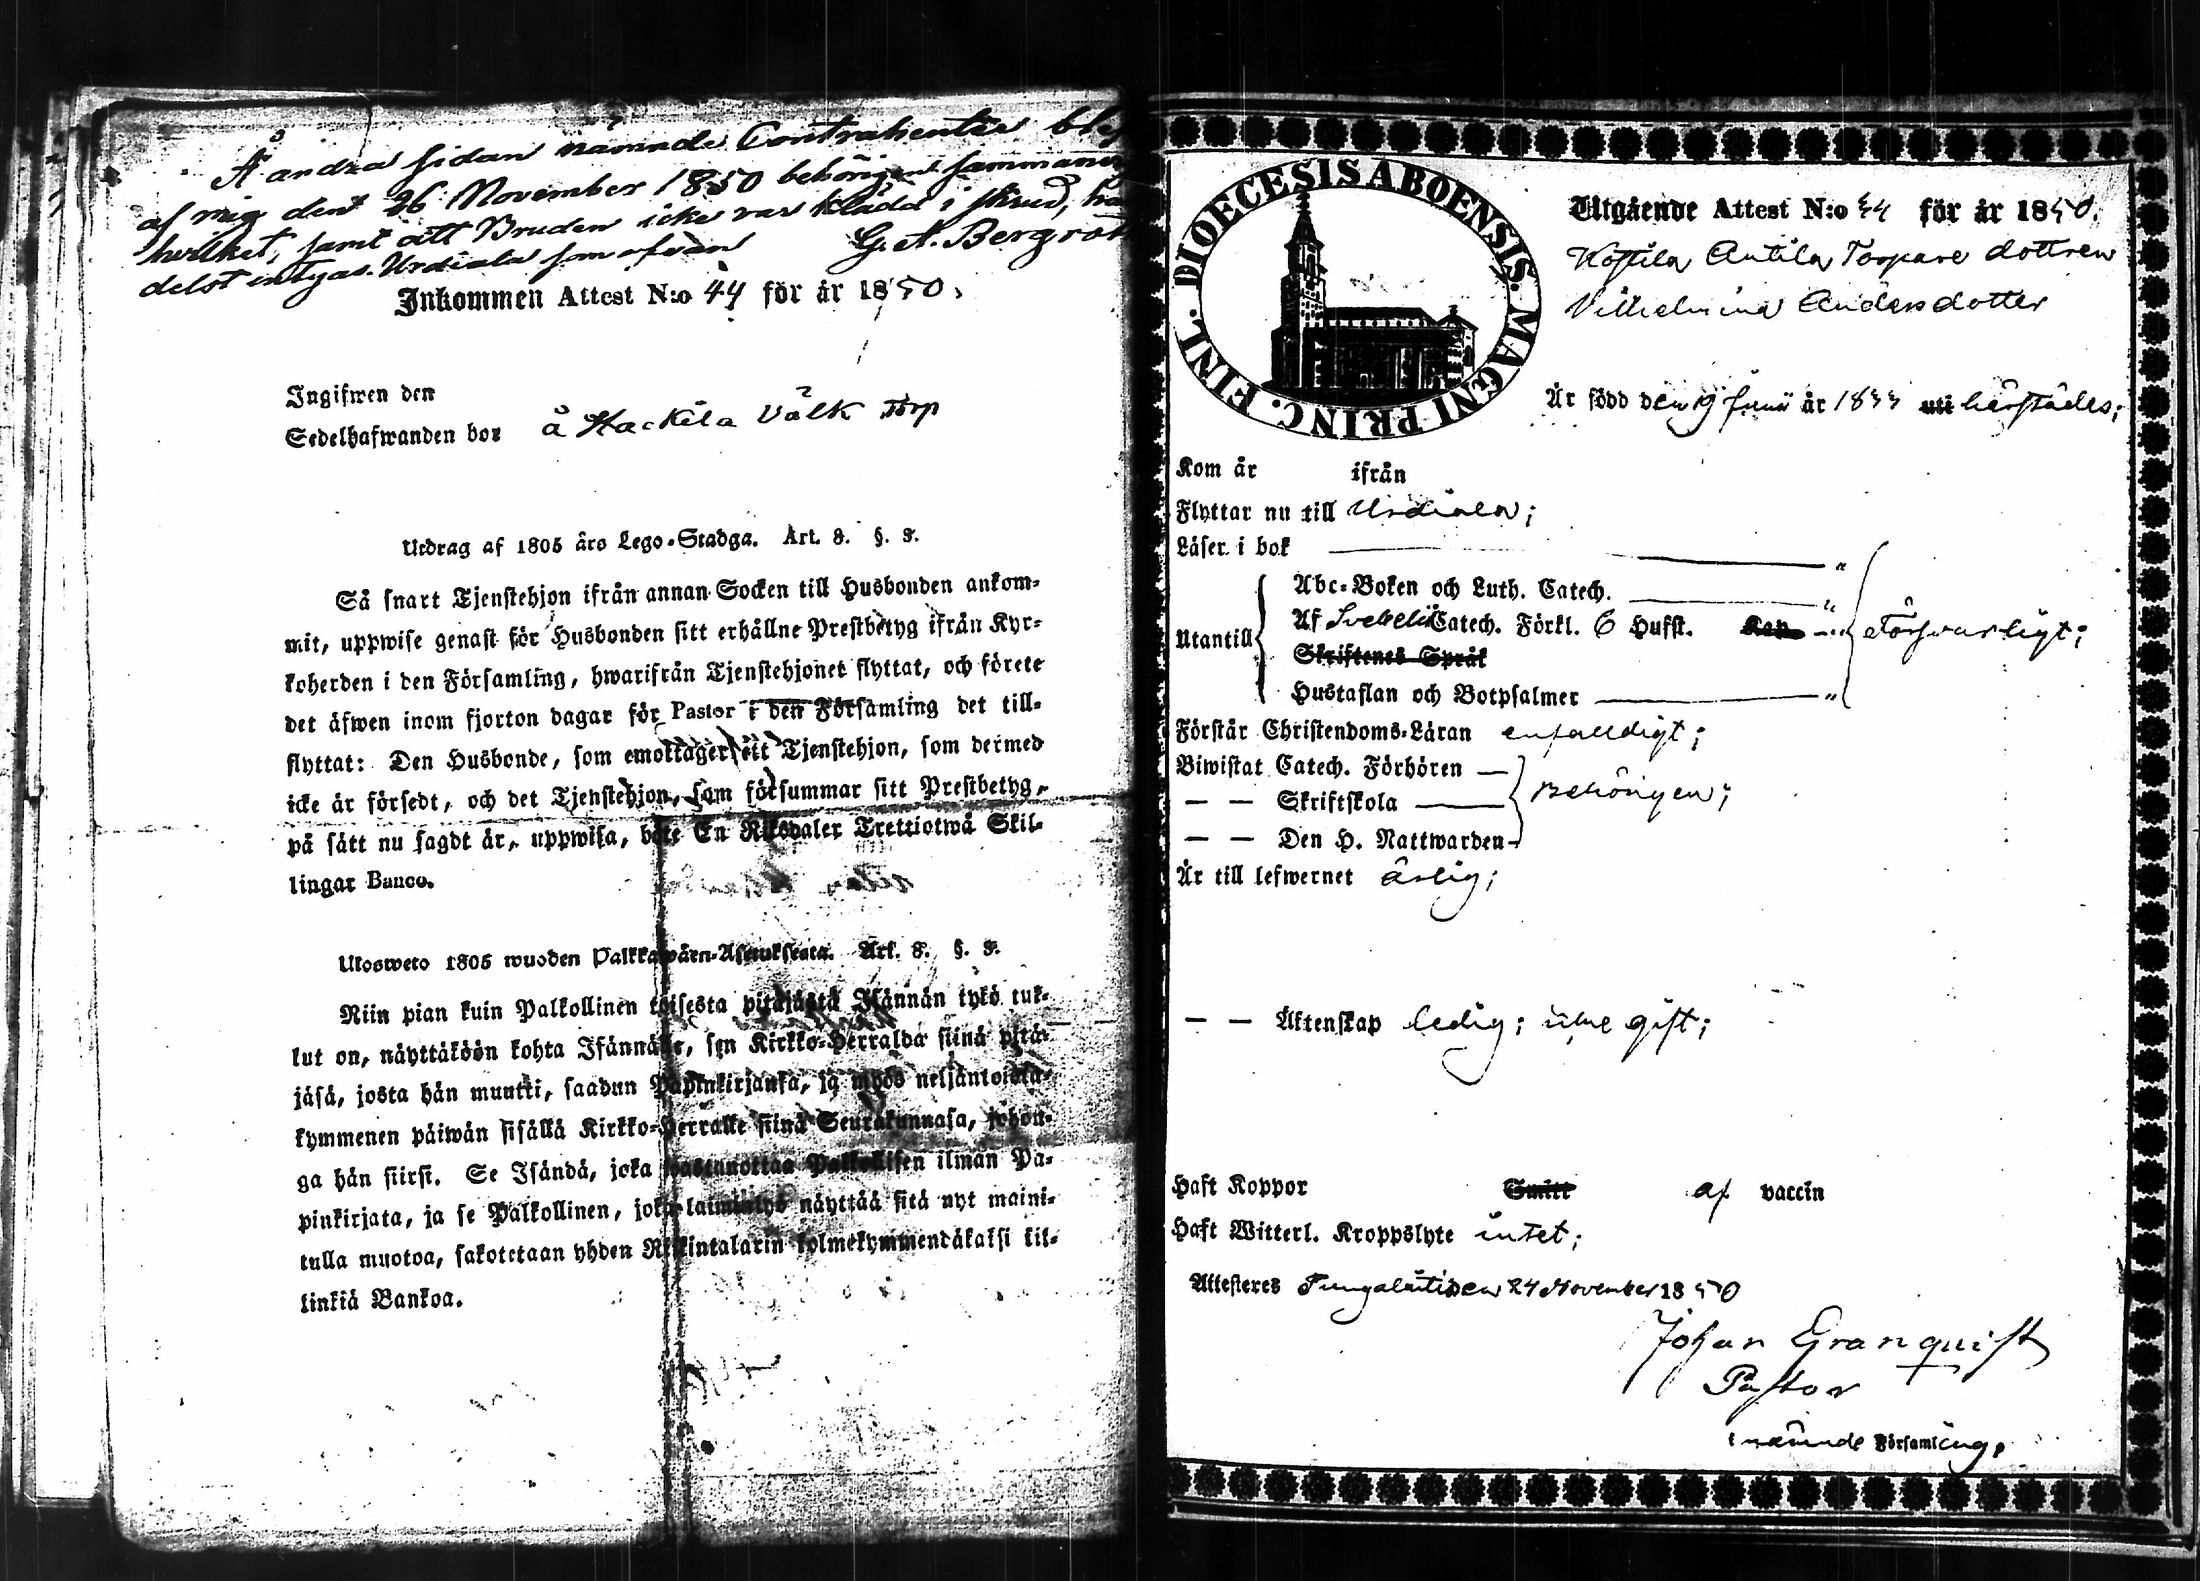 Å andra sidan nämnde Contrahenter
af mig den 26 November 1850 behörigen
hvilket, samt att Bruden icke var klädd i skrud,
delst intygas. Urdiala som ofvan G. A. Bergroth
Inkommen Attest N:o 44 för år 1850.
Ingifwen den
Sedelhafwanden bor å Hackila Välk Torp
Utdrag af 1805 års Lego-Stadga. Art. 8. §. 8.
Så snart Tjenstehjon ifrån annan Socken till Husbonden ankom-
mit, uppwise genast för Husbonden sitt erhållne Prestbetyg ifrån Kyr-
koherden i den Församling, hwarifrån Tjenstehjonet flyttat, och förete
det äfwen inom fjorton dagar för Pastor i den Församling det till-
flyttat: Den Husbonde, som emottager ett Tjenstehjon, som dermed
icke är försedt, och det Tjenstehjon, som försummar sitt Prestbetyg,
på sätt nu sagdt är, uppwisa, böte En Riksdaler Trettiotwå Skil-
lingar Banco.
Ulosweto 1805 wuoden Palkkawäen-Asetuksesta. Art. 8. §. 8.
Niin pian kuin Palkollinen toisesta pitäjästä Isännän tykö tul-
lut on, näyttäköön kohta Isännälle, sen Kirkko-Herralda siinä pitä-
jäsä, josta hän muutti, saadun Papinkirjansa, ja myös neljäntoista-
kymmenen päiwän sisällä Kirkko-Herralle siinä Seurakunnasa, johon-
ga hän siirsi. Se Isändä, joka wastanottaa Palkollisen ilman Pa-
pinkirjata, ja se Palkollinen, joka laiminlyö näyttää sitä nyt maini-
tulla muotoa, sakotetaan yhden Riikintalarin kolmekymmendäkaksi kil-
linkiä Bankoa.
DIOECESIS ABOENSIS. MAGNI PRINC. FINL.
Utgående Attest N:o 44 för år 1850.
Antila Torpare dottren
Vilhelmina Andersdotter
Är född den 19 Junii år 1833 uti härstädes;
Kom år ifrån
Flyttar nu till Urdiala;
Läser i bok — "
Utantill
Abc-Boken och Luth. Catech. — "
Af Svebelii Catech. Förkl. 6 Hufst. Kap. — " Försvarligt;
Skriftenes Språk
Hustaflan och Botpsalmer — "
Förstår Christendoms-Läran enfaldigt;
Biwistat Catech. Förhören —
— — Skriftskola — Behörigen;
— — Den H. Nattwarden —
Är till lefwernet ärlig;
— — Äktenskap ledig; till gift;
Haft Koppor Smitt af vaccin
Haft Witterl. Kroppslyte intet;
Attesteres den 24 November 1850
Johan Granquist
Pastor
i nämnde Församling.